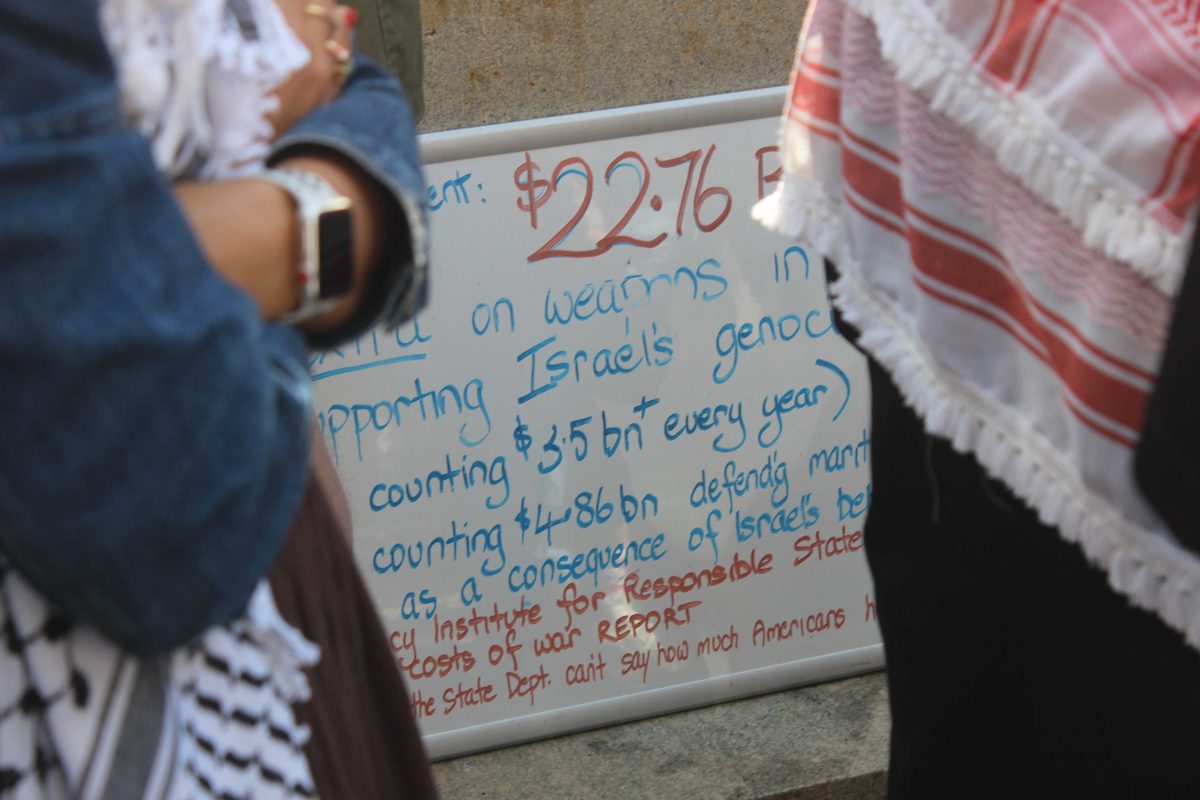 ent: $22.76 B
extra on weapons in
upporting Israel's genoc
counting $3.5bn+ every year)
counting $4.86bn defend'g marit
as a consequence of Israel's be
cy Institute for Responsible State
costs of war REPORT
the State Dept. can't say how much Americans h